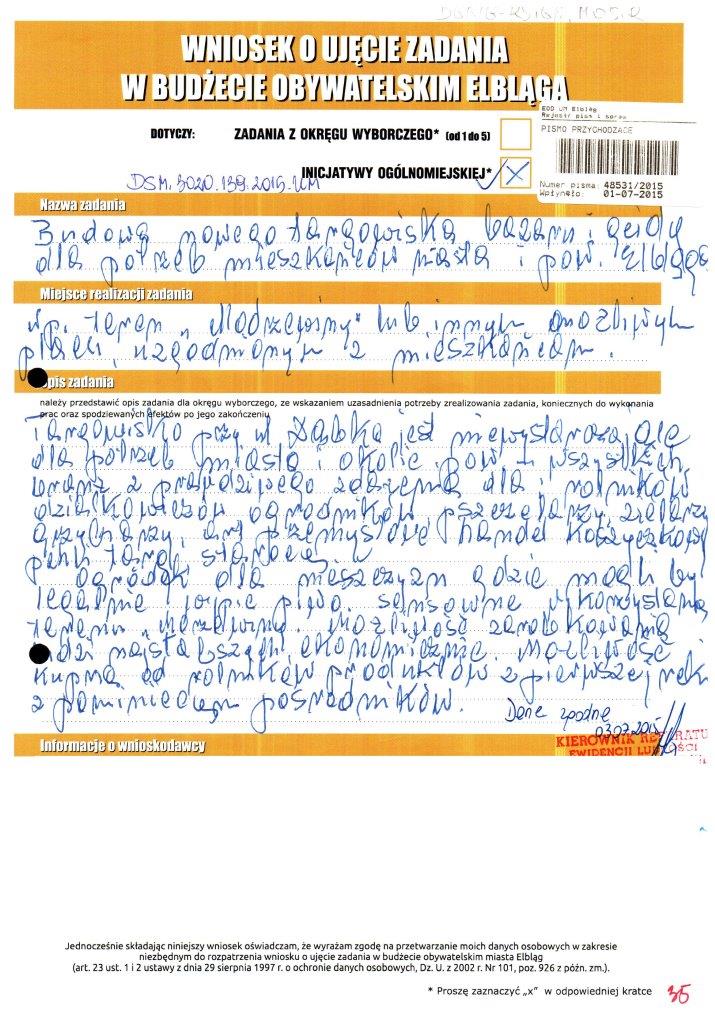 WNIOSEK O UJĘCIE ZADANIA
W BUDŻECIE OBYWATELSKIM ELBLĄGA
EOD UM Elbląg
Rejestr pism i spraw
PISMO PRZYCHODZĄCE
Numer pisma: 48531/2015
Wpłynęło: 01-07-2015
DOTYCZY: ZADANIA Z OKRĘGU WYBORCZEGO* (od 1 do 5)
INICJATYWY OGÓLNOMIEJSKIEJ* X
DSM.3020.139.2015.UM
Nazwa zadania
Budowa nowego targowiska bazaru i giełdy
dla potrzeb mieszkańców miasta i pow. Elbląg
Miejsce realizacji zadania
np. teren „Modrzewiny" lub innym możliwym
placu, uzgodnionym z mieszkańcam.
Opis zadania
należy przedstawić opis zadania dla okręgu wyborczego, ze wskazaniem uzasadnienia potrzeby zrealizowania zadania, koniecznych do wykonania
prac oraz spodziewanych efektów po jego zakończeniu
Targowisko przy ul. Dąbka jest niewystarczające
dla potrzeb miasta i okolic pow – wszystkich
branż z prawdziwego zdarzenia dla rolników
działkowiczów ogrodników pszczelarzy, zielarzy
grzybiarzy, art przemysłowe handel koszyczkowy
pchli targ, starocie
ogródek dla mieszczyzn gdzie mogli by
legalnie i piwo. sensowne wykorzystanie
terenu „Modrzewiny. Możliwość zarobkowania
ludzi najsłabszych ekonomicznie. Możliwość
kupna od rolników produktów z pierwszej ręki
z pominięciem pośredników.
Dane zgodne
03.07.2015
KIEROWNIK REFERATU
EWIDENCJI LUDNOŚCI
Informacje o wnioskodawcy
Jednocześnie składając niniejszy wniosek oświadczam, że wyrażam zgodę na przetwarzanie moich danych osobowych w zakresie
niezbędnym do rozpatrzenia wniosku o ujęcie zadania w budżecie obywatelskim miasta Elbląg
(art. 23 ust. 1 i 2 ustawy z dnia 29 sierpnia 1997 r. o ochronie danych osobowych, Dz. U. z 2002 r. Nr 101, poz. 926 z późn. zm.).
* Proszę zaznaczyć „x" w odpowiedniej kratce
35